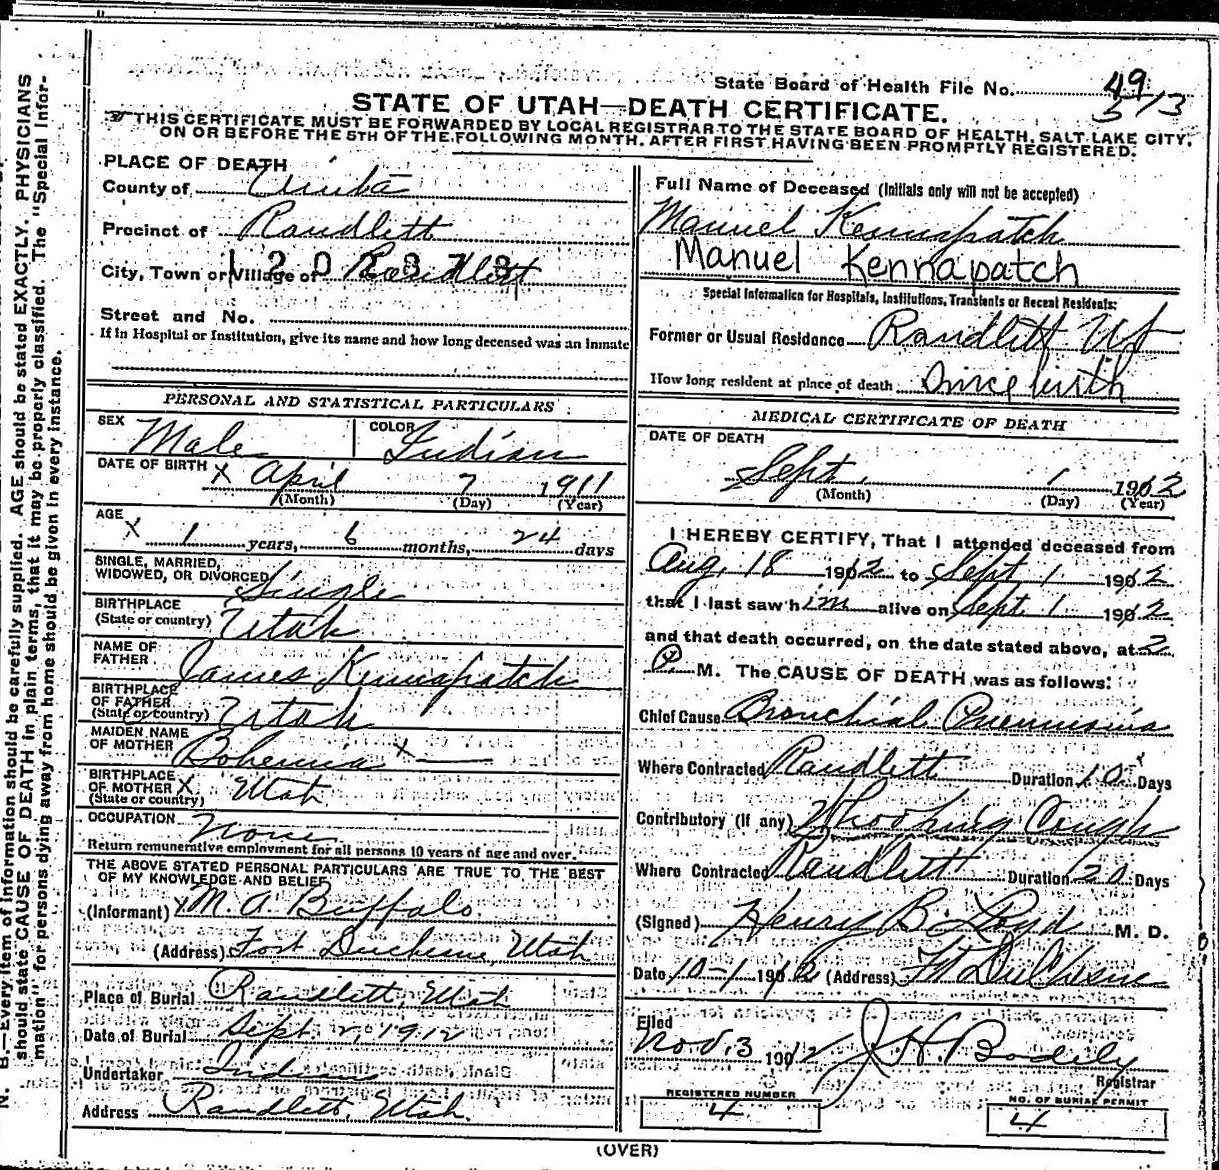 State Board of Health File No. 49
5713
STATE OF UTAH—DEATH CERTIFICATE.
THIS CERTIFICATE MUST BE FORWARDED BY LOCAL REGISTRAR TO THE STATE BOARD OF HEALTH, SALT LAKE CITY,
ON OR BEFORE THE 5TH OF THE FOLLOWING MONTH, AFTER FIRST HAVING BEEN PROMPTLY REGISTERED.
PLACE OF DEATH
County of Uinta
Precinct of Randlett
City, Town or Village of Randlett
Street and No.
If in Hospital or Institution, give its name and how long deceased was an Inmate
PERSONAL AND STATISTICAL PARTICULARS
SEX Male COLOR Indian
DATE OF BIRTH X April 7 1911
(Month) (Day) (Year)
AGE
X 1 years, 6 months, 24 days
SINGLE, MARRIED,
WIDOWED, OR DIVORCED Single
BIRTHPLACE
(State or country) Utah
NAME OF
FATHER James Kennapatch
BIRTHPLACE
OF FATHER
(State or country) Utah
MAIDEN NAME
OF MOTHER Bohemia X
BIRTHPLACE
OF MOTHER X
(State or country) Utah
OCCUPATION None
Return remunerative employment for all persons 10 years of age and over.
THE ABOVE STATED PERSONAL PARTICULARS ARE TRUE TO THE BEST
OF MY KNOWLEDGE AND BELIEF
(Informant) X M. A. Buffalo.
(Address) Fort Duchesne, Utah
Place of Burial Randlett, Utah
Date of Burial Sept. 2, 1912
Undertaker Indian
Address Randlett, Utah
Full Name of Deceased (Initials only will not be accepted)
Manuel Kennapatch
Manuel Kennapatch
Special Information for Hospitals, Institutions, Transients or Recent Residents:
Former or Usual Residence Randlett Ut
How long resident at place of death Since birth
MEDICAL CERTIFICATE OF DEATH
DATE OF DEATH
Sept. 1 1912
(Month) (Day) (Year)
I HEREBY CERTIFY, That I attended deceased from
Aug. 18 1912 to Sept. 1 1912
that I last saw him alive on Sept. 1 1912
and that death occurred, on the date stated above, at 2
P M. The CAUSE OF DEATH was as follows:
Chief Cause Bronchial Pneumonia
Where Contracted Randlett Duration 10 Days
Contributory (if any) Whooping Cough
Where Contracted Randlett Duration 20 Days
(Signed) Henry B. Loyd M. D.
Date 10-1 1912 (Address) Ft DuChesne
Filed
Nov. 3 1912 J H Bodily
Registrar
REGISTERED NUMBER
4
NO. OF BURIAL PERMIT
4
(OVER)
N. B.—Every item of information should be carefully supplied. AGE should be stated EXACTLY. PHYSICIANS
should state CAUSE OF DEATH in plain terms, that it may be properly classified. The "Special Infor-
mation" for persons dying away from home should be given in every instance.